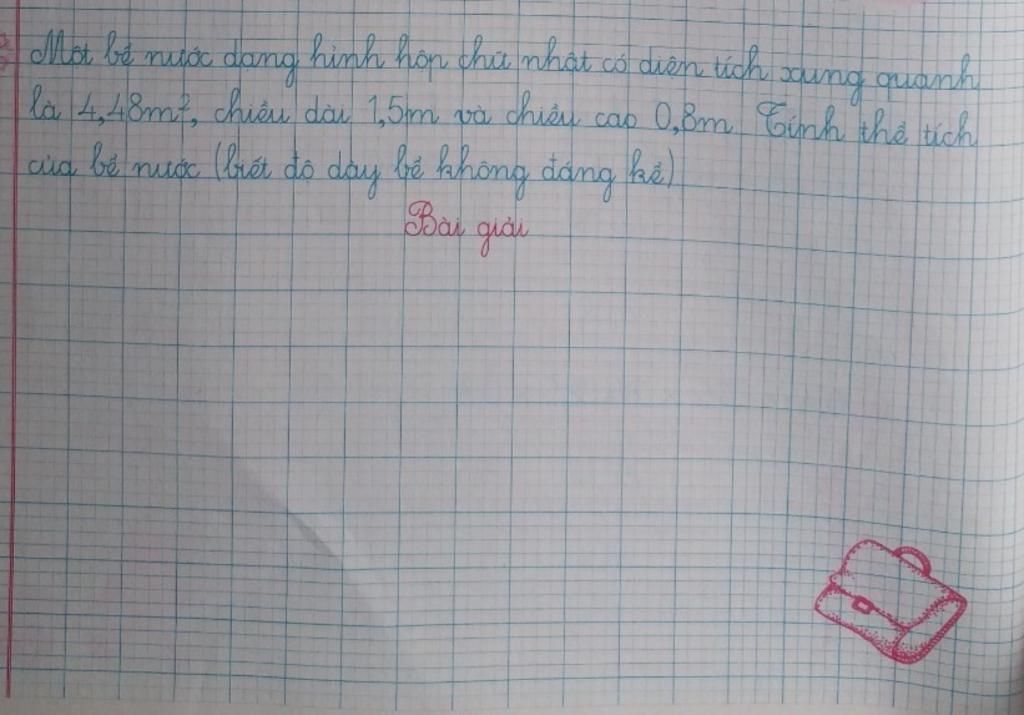 Một bể nước dạng hình hộp chữ nhật có diện tích xung quanh
là 4,48m², chiều dài 1,5m và chiều cao 0,8m. Tính thể tích
của bể nước (biết độ dày bể không đáng kể)
Bài giải